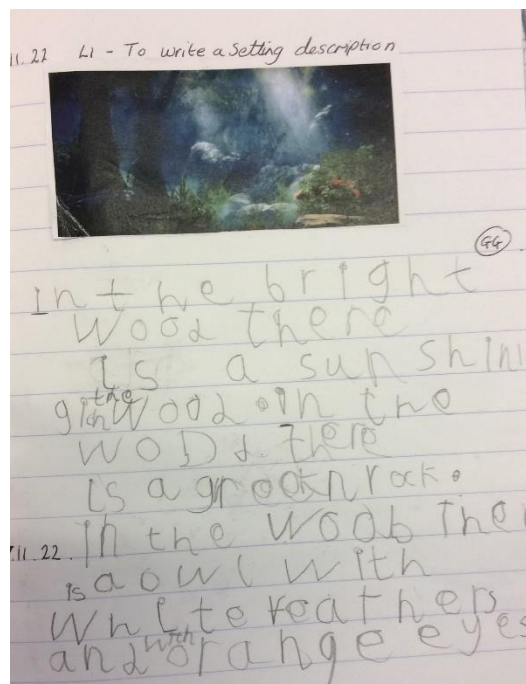 11.22 LI - To write a setting description
GG
In the bright
wood there
is a sunshini
the
gith wood. in the
woDd. there
is a groeknrock.
11.22. In the woob the
is a owl with
white feathers
with
and orange eyes